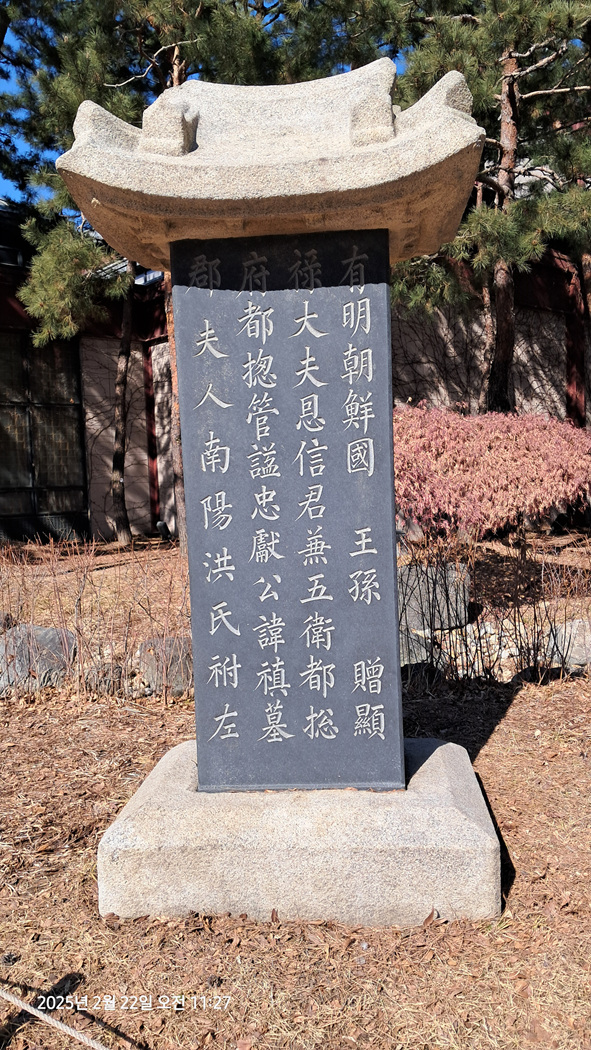 有明朝鮮國 王孫 贈顯
祿大夫恩信君兼五衛都揔
府都揔管謚忠獻公諱禛墓
郡夫人南陽洪氏祔左
2025년 2월 22일 오전 11:27